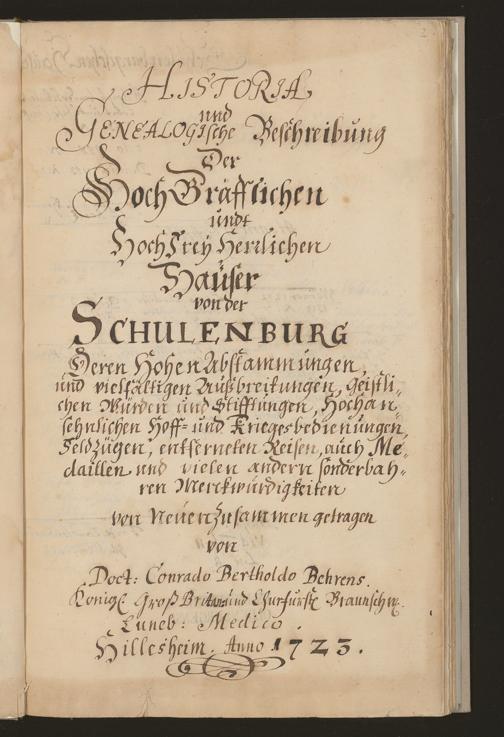 HISTORIA
und
GENEALOGische Beschreibung
Der
HochGräfflichen
undt
HochFreyHerrlichen
Häuser
von der
SCHULENBURG
Deren Hohen Abstammungen,
und vielfältigen Außbreitungen, Geistli-
chen Würden und Stifftungen, Hochan-
sehnlichen Hoff- und Kriegesbedienungen,
Feldzügen, entferneten Reisen, auch Me-
daillen und vielen andern sonderbah-
ren Merckwürdigkeiten
von Neuen zusammen getragen
von
Doct: Conrado Bertholdo Behrens.
Königl. Groß Brit: und Churfürstl. Braunschw.
Luneb: Medico.
Hillesheim. Anno 1723.